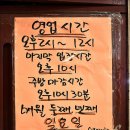 영업시간
오후2시~12시
마지막 입장시간
오후10시
주방 마감시간
오후10시30분
매월 둘째, 넷째
일요일